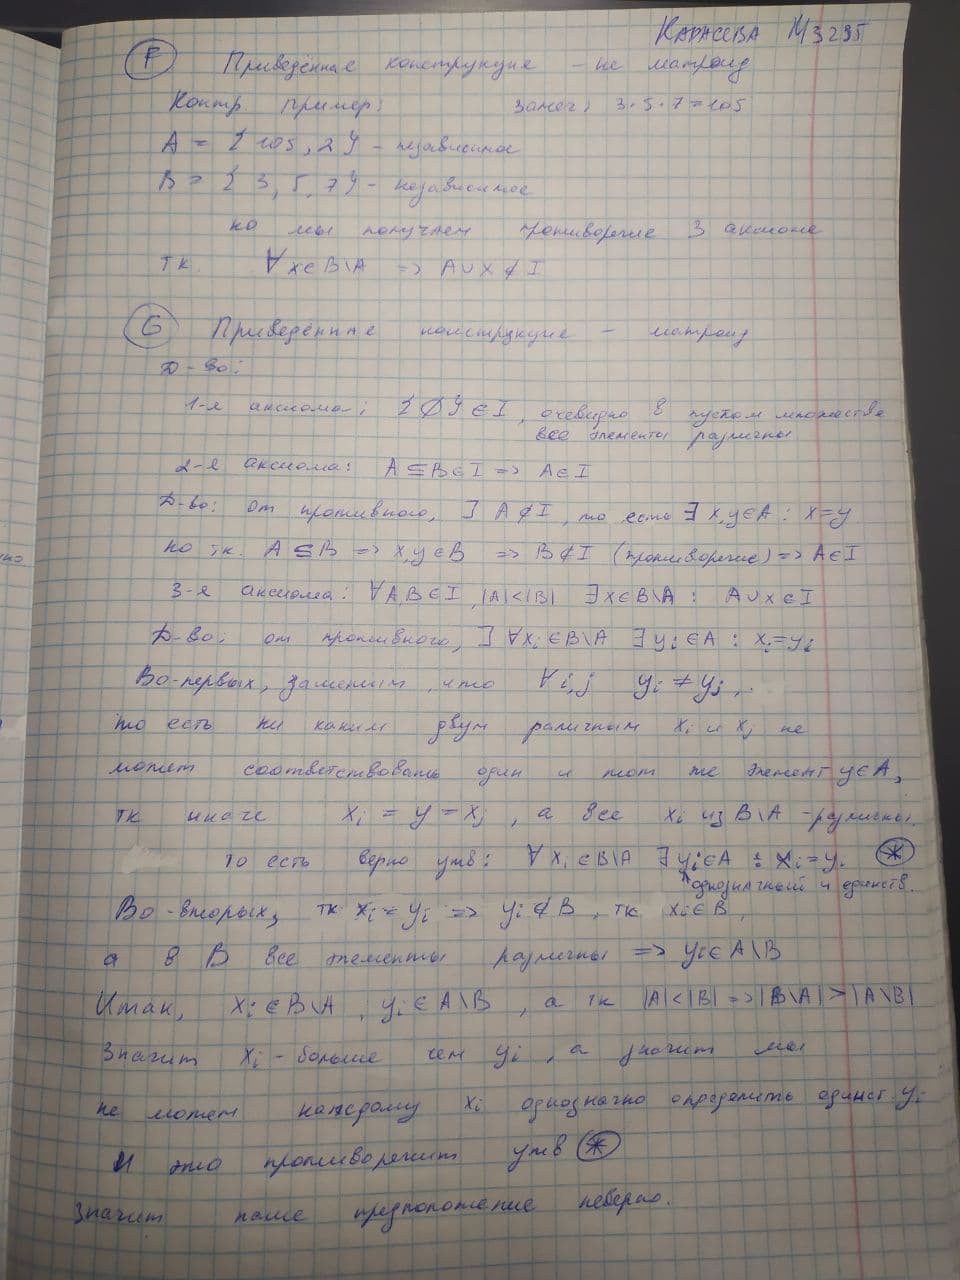 Карасева М3235
F Приведённая конструкция - не матроид
Контр пример: Замеч: 3·5·7=105
A = {105, 2} - независимое
B = {3, 5, 7} - независимое
но мы получаем противоречие 3 аксиоме
тк. ∀x∈B\A => A∪x∉I
G Приведённая конструкция - матроид
Д-во:
1-я аксиома: {∅}∈I, очевидно в пустом множестве
все элементы различны
2-я аксиома: A⊆B∈I => A∈I
Д-во: от противного, ∃ A∉I, то есть ∃ x,y∈A : x=y
но тк. A⊆B => x,y∈B => B∉I (противоречие) => A∈I
3-я аксиома: ∀A,B∈I, |A|<|B| ∃x∈B\A : A∪x∈I
Д-во: от противного, ∃ ∀xi∈B\A ∃yi∈A : xi=yi
Во-первых, заметим, что ∀i,j yi≠yj,
то есть ни каким двум различным xi и xj не
может соответствовать один и тот же элемент y∈A,
тк иначе xi = y = xj, а все xi из B\A - различны.
то есть верно утв: ∀xi∈B\A ∃yi∈A : xi=yi (*)
однозначный и единств.
Во-вторых, тк xi=yi => yi∉B, тк xi∈B,
а в B все элементы различны => yi∈A\B
Итак, xi∈B\A, yi∈A\B, а тк |A|<|B| => |B\A|>|A\B|
Значит xi - больше чем yi, а значит мы
не можем каждому xi однозначно определить единст. yi
И это противоречит утв (*)
Значит наше предположение неверно.